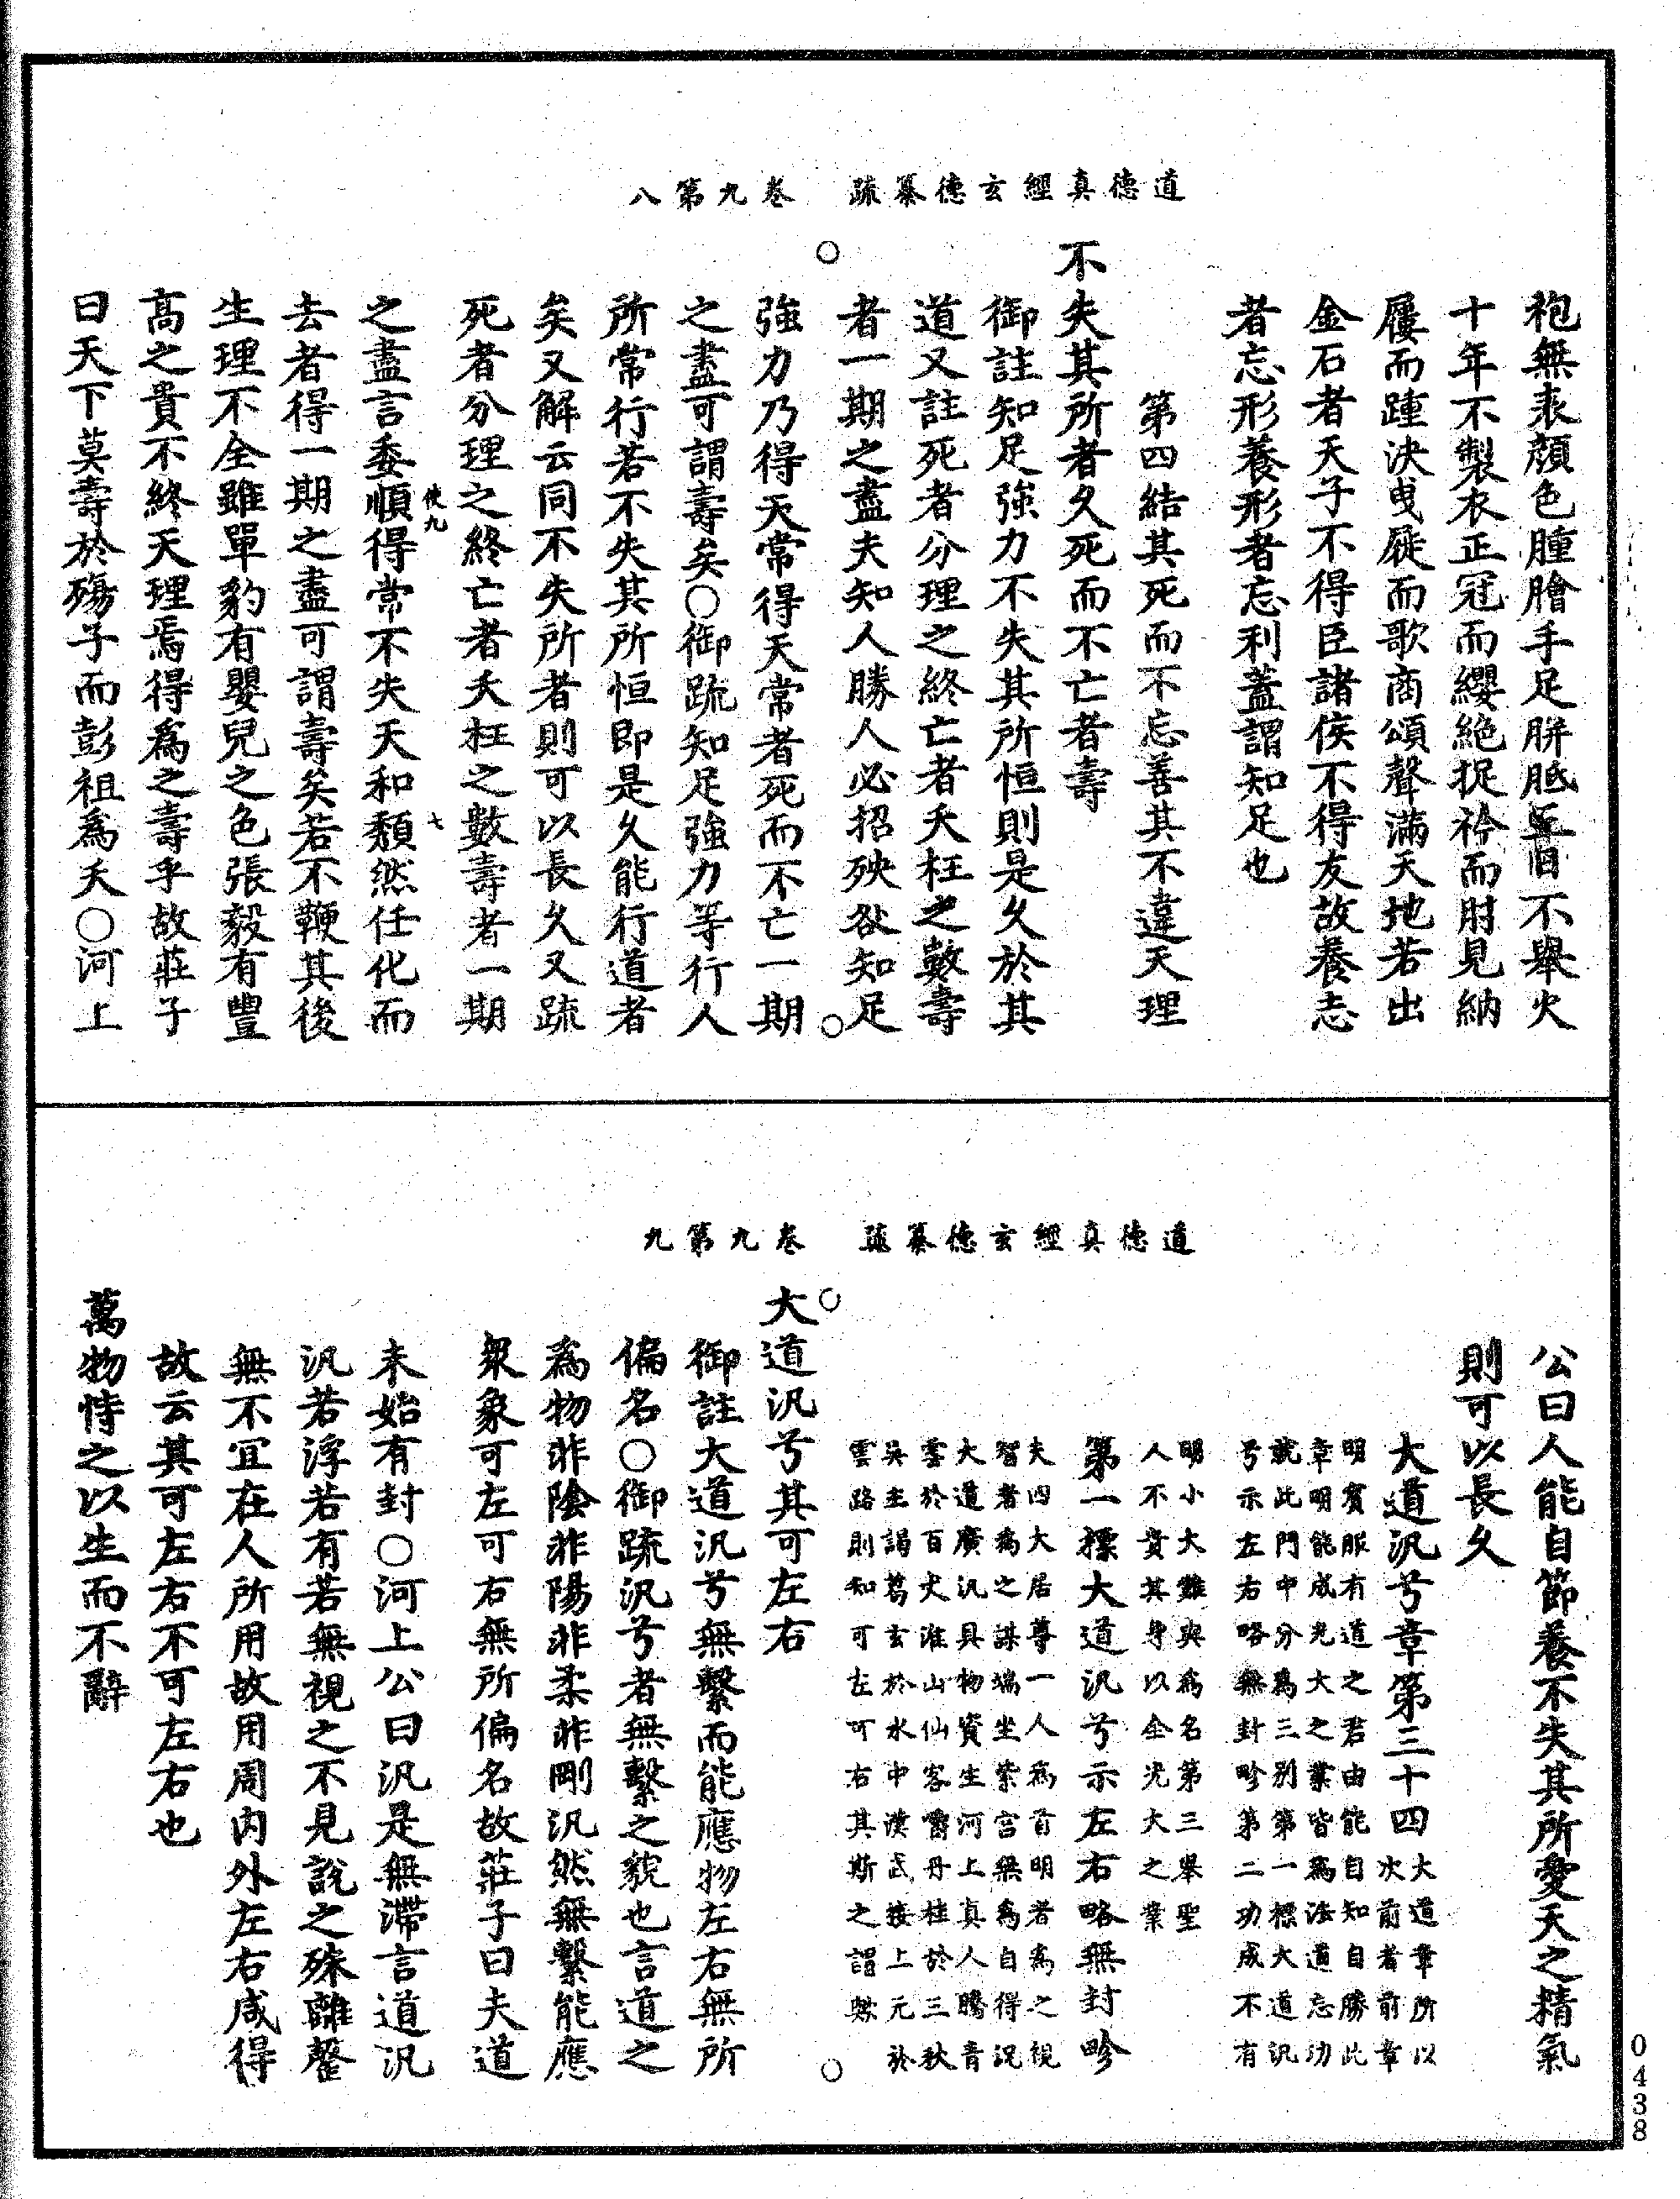 道德真經玄德纂疏　卷九第八
袍無表顏色腫膾手足胼胝三日不舉火
十年不製衣正冠而纓絶捉衿而肘見納
屨而踵決曳屣而歌商頌聲滿天地若出
金石者天子不得臣諸侯不得友故養志
者忘形養形者忘利蓋謂知足也
第四結其死而不忘善其不違天理
不失其所者久死而不亡者壽
御註知足強力不失其所恒則是久於其
道又註死者分理之終亡者夭枉之數壽
者一期之盡夫知人勝人必招殃咎知足
強力乃得天常得天常者死而不亡一期
之盡可謂壽矣○御疏知足強力等行人
所常行若不失其所恒即是久能行道者
矣又解云同不失所者則可以長久又疏
死者分理之終亡者夭枉之數壽者一期
使九
七
之盡言委順得常不失天和頽然任化而
去者得一期之盡可謂壽矣若不鞭其後
生理不全雖單豹有嬰兒之色張毅有豐
高之貴不終天理焉得爲之壽乎故莊子
曰天下莫壽於殤子而彭祖爲夭○河上
道德真經玄德纂疏　卷九第九
公曰人能自節養不失其所愛天之精氣
則可以長久
大道汎兮章第三十四
大道章所以
次前者前章
明賓服有道之君由能自知自勝此
章明能成光大之業皆爲法道忘功
就此門中分爲三别第一標大道汎
兮示左右略無封畛第二功成不有
明小大難與爲名第三舉聖
人不貴其身以全光大之業
第一標大道汎兮示左右略無封畛
夫四大居尊一人爲首明者爲之視
智者爲之謀端坐紫宫無爲自得況
大道廣汎具物資生河上真人騰青
雲於百丈淮山仙客罱丹桂於三秋
吳主謁葛玄於水中漢武接上元於
雲路則知可左可右其斯之謂歟
大道汎兮其可左右
御註大道汎兮無繫而能應物左右無所
偏名○御疏汎兮者無繫之貌也言道之
爲物非陰非陽非柔非剛汎然無繫能應
衆象可左可右無所偏名故莊子曰夫道
未始有封○河上公曰汎是無滯言道汎
汎若浮若有若無視之不見說之殊離罄
無不冝在人所用故用周内外左右咸得
故云其可左右不可左右也
萬物恃之以生而不辭
0438